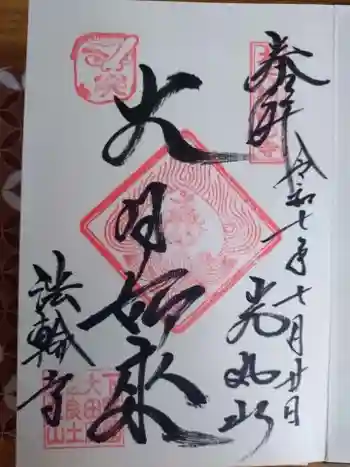 奉拝
令和七年七月廿日
光丸山
大日如来
法輪寺